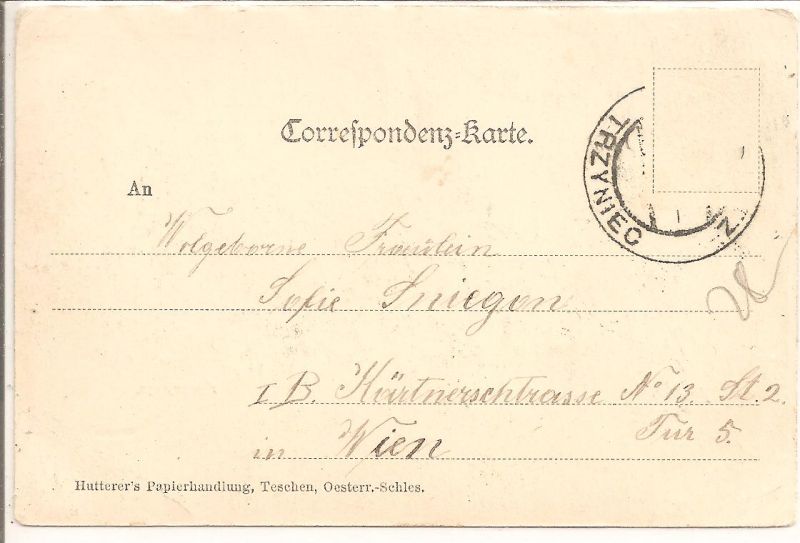 Correspondenz-Karte.
TRZYNIEC
An
Wolgeborne Fräulein
Sofie Sniegon
I B. Kärtnerschtrasse No 13. St. 2.
Tür 5.
in Wien
Hutterer's Papierhandlung, Teschen, Oesterr.-Schles.